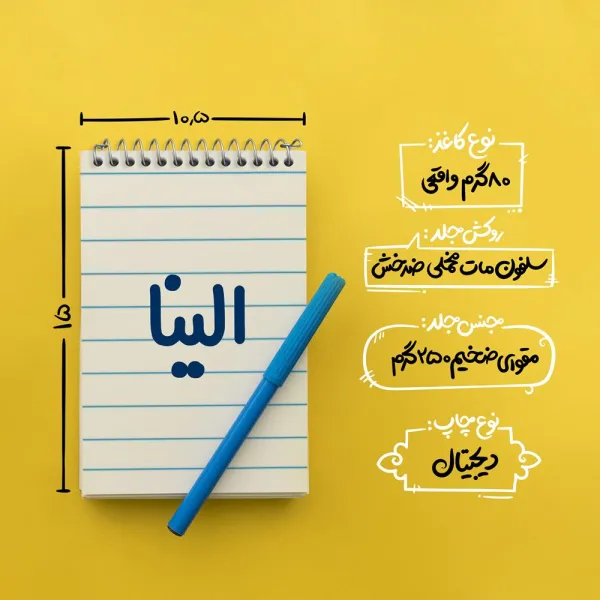 ۱۰٫۵
۱۵
الینا
نوع کاغذ:
۸۰گرم واقعی
روکش جلد:
سلفون مات مخملی ضدخش
جنس جلد:
مقوای ضخیم ۲۵۰گرم
نوع چاپ:
دیجیتال